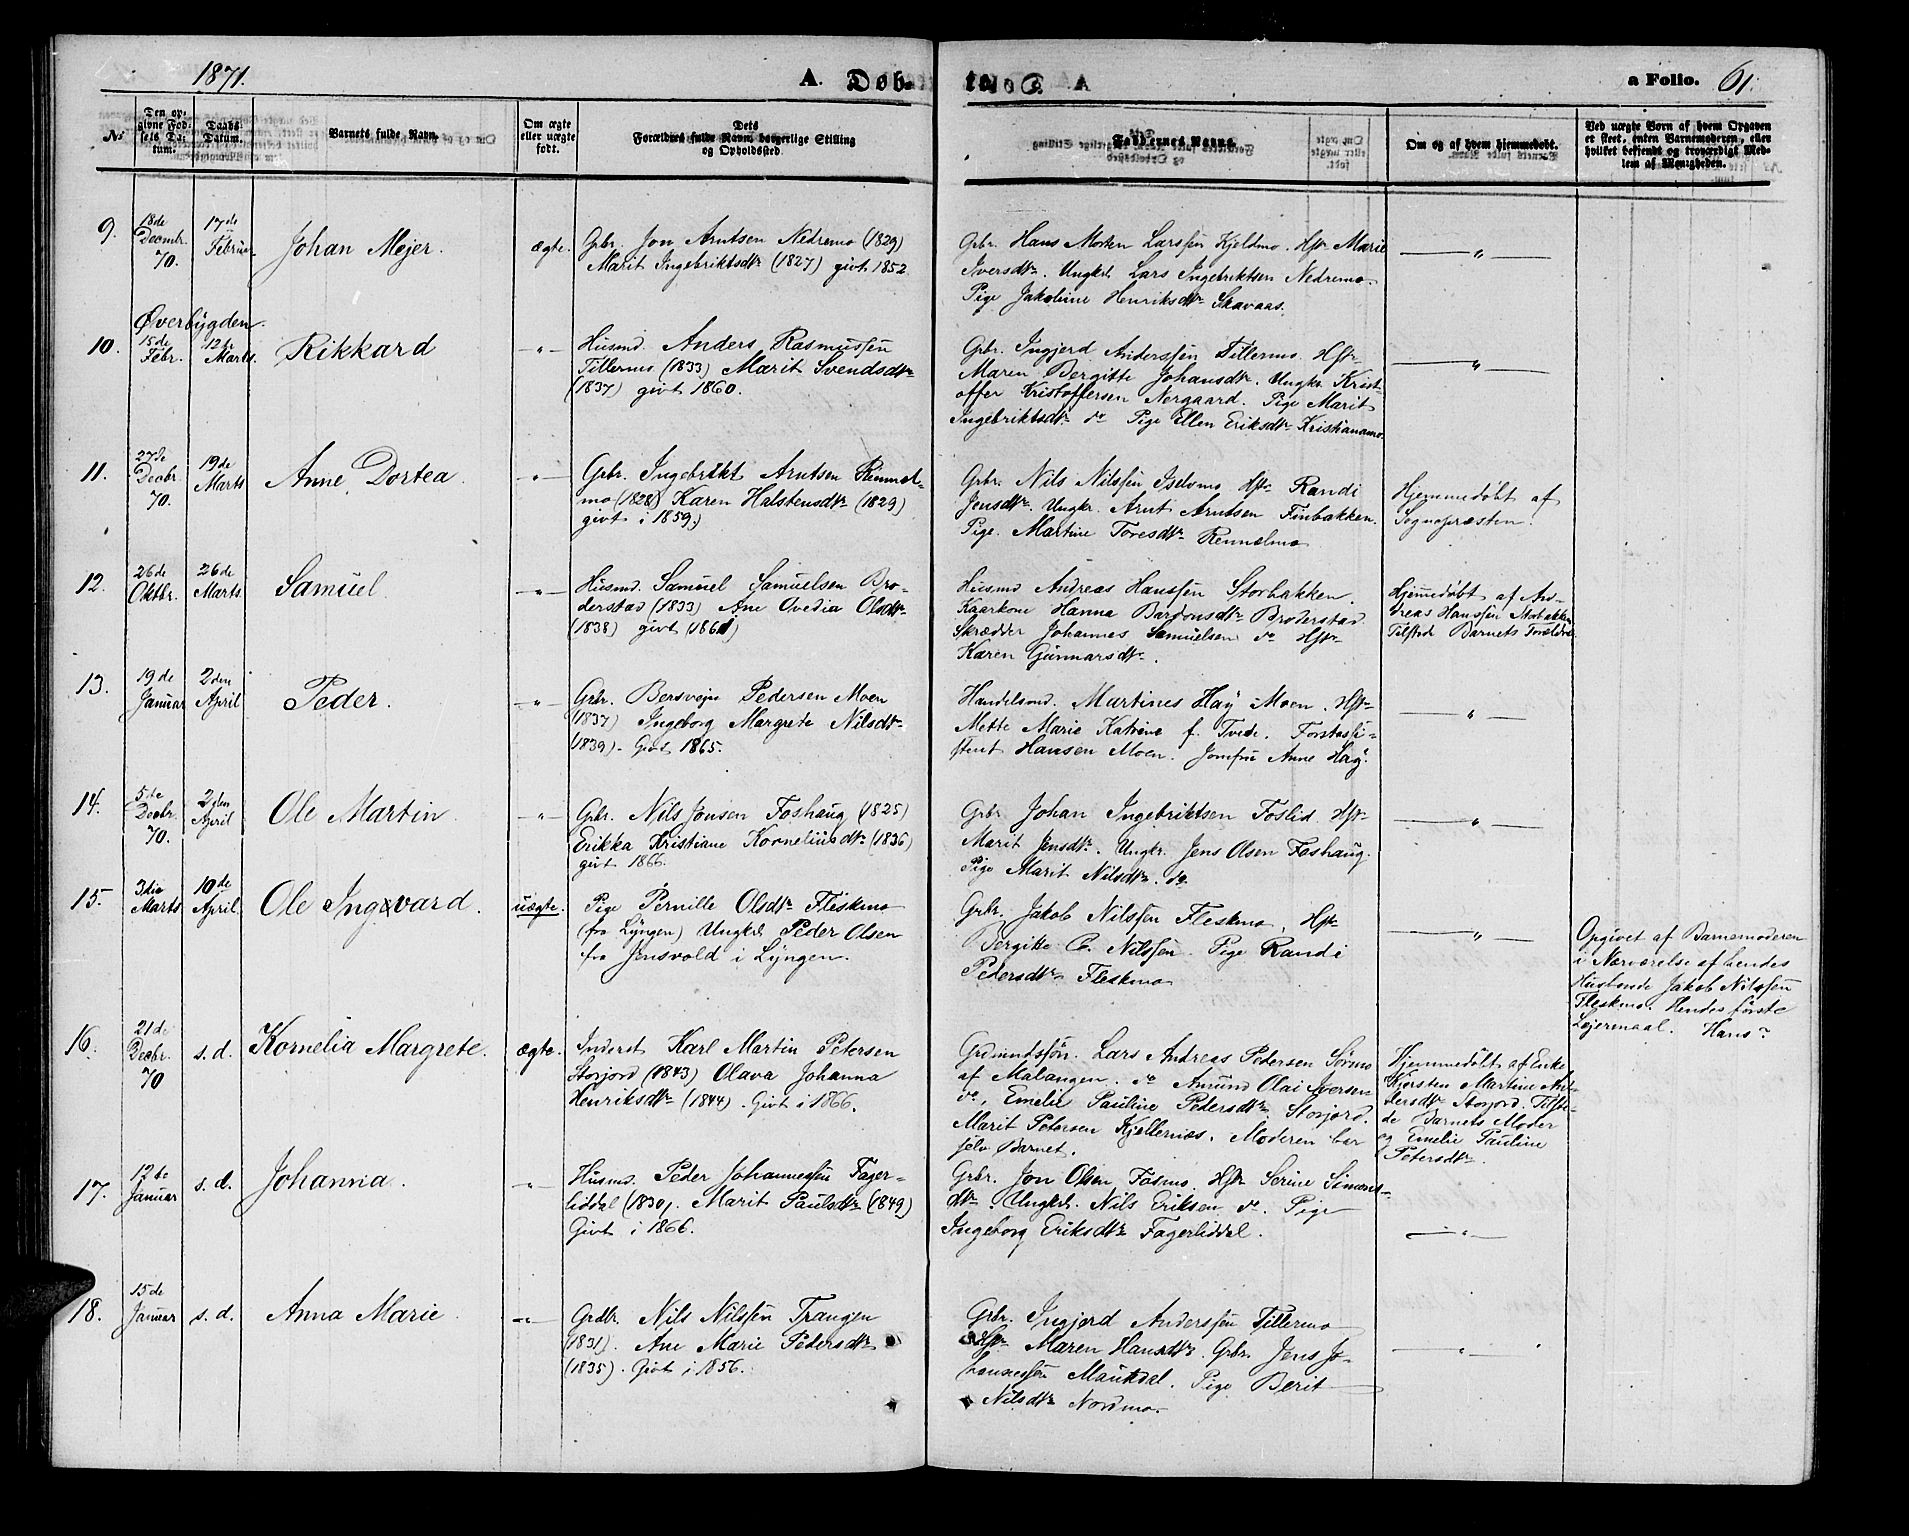 1871.
A. Døb-
te.
a Folio. 61.
No
Den op-
givne Fød-
sels Da-
tum.
Daabs-
Datum.
Barnets fulde Navn.
Om ægte
eller uægte
født.
Dets
Forældres fulde Navn, borgerlige Stilling
og Opholdssted.
Faddernes Navne.
Om og af hvem hjemmedøbt.
Ved uægte Børn af hvem Opgaven
er skeet, enten Barnemoderen, eller
hvilket bekjendt og troværdigt Med-
lem af Menigheden.
9.
18de
Decmbr.
70.
17de
Februar
Johan Mejer.
ægte.
Grbr. Jon Arntsen Nedremo (1829)
Marit Ingebriktsdtr (1827) givt 1852
Grbr. Hans Morten Larssen Kjeldmo. Hstr Marie
Iversdtr. Ungkrl. Lars Ingebriktsen Nedremo.
Pige Jakobine Henriksdtr Skavaas.
— " —
Øverbygden.
10.
15de
Febr.
12te
Marts.
Rikkard
— " —
Husmd. Anders Rasmussen
Tillermo (1833) Marit Svendsdtr
(1837) givt 1860.
Grbr. Ingjerd Anderssen Tillermo. Hstr
Maren Bergitte Johansdtr. Ungkr. Krist-
offer Kristoffersen Nergaard. Pige Marit
Ingebriktsdtr do Pige Ellen Eriksdtr Kristianamo.
— " —
11.
27de
Decbr.
70.
19de
Marts
Anne Dortea.
— " —
Grbr. Ingebrikt Arntsen Rennel-
mo (1828) Karen Halstensdtr (1829)
givt i 1859.)
Grbr. Nils Nilssen Iselvmo Hstr Randi
Jensdtr. Ungkr. Arnt Arntsen Finbakken.
Pige. Martine Toresdtr Rennelmo
Hjemmedøbt af
Sognepræsten.
12.
26de
Oktbr.
26de
Marts
Samuel.
— " —
Husmd. Samuel Samuelsen Bro-
derstad (1833) Ane Ovedia Olsdtr
(1838) givt (1861)
Husmd Andreas Hanssen Storbakken.
Kaarkone Hanna Bardonsdtr Broderstad
Skrædder Johannes Samuelsen do Hstr
Karen Gunnarsdtr.
Hjemmedøbt af An-
dreas Hanssen Storbakken
Tilstede Barnets Forældre
13.
19de
Januar
2den
April
Peder.
— " —
Grbr. Bersvejn Pedersen Moen
(1837) Ingeborg Margrete Nilsdtr
(1839) - Givt 1865.
Handelsmd. Martines Høy Moen. Hstr
Mette Marie Katrine f. Tvede. Forstassi-
stent Hansen Moen. Jomfru Anne Høy.
— " —
14.
5te
Decbr.
70.
2den
April
Ole Martin.
— " —
Grbr. Nils Jonsen Foshaug (1825)
Erikka Kristiane Korneliusdtr (1836)
givt 1866.
Grbr. Johan Ingebriktsen Foslid. Hstr
Marit Jensdtr. Ungkr. Jens Olsen Foshaug.
Pige Marit Nilsdtr. do
— " —
15.
3die
Marts
10de
April.
Ole Ingevard.
uægte.
Pige Pernille Olsdtr Fleskmo
(fra Lyngen) Ungkl. Peder Olsen
fra Jensvold i Lyngen.
Grbr. Jakob Nilssen Fleskmo, Hstr
Bergitte B. Nilssen. Pige Randi
Pedersdtr Fleskmo
— " —
Opgivet af Barnemoderen
i Nærværelse af hendes
Husbonde Jakob Nilssen
Fleskmo. Hendes første
Lejermaal. Hans?
16.
21de
Decbr.
70
s. d.
Kornelia Margrete.
ægte.
Inderst Karl Martin Petersen
Storjord (1843) Olava Johanna
Henriksdtr (1844). Givt i 1866.
Grdmandssøn. Lars Andreas Pedersen Sørmo
af Malangen. do Amund Olai Iversen
do. Emelie Pauline Pedersdtr Storjord.
Marit Petersen Kjellernæs. Moderen bar
selv Barnet.
Hjemmedøbt af Enke
Kjersten Martine An-
dersdtr Storjord. Tilste-
de Barnets Moder
og Emelie Pauline
Petersdtr.
17.
12te
Januar
s. d.
Johanna.
— " —
Husmd. Peder Johannessen Fager-
liddal (1830). Marit Paulsdtr (1849)
Givt i 1866.
Grbr. Jon Olsen Fosmo. Hstr Serine Simons-
dtr. Ungkrl. Nils Eriksen do. Pige
Ingeborg Eriksdtr Fagerliddal.
— " —
18.
15de
Januar
s. d.
Anna Marie.
— " —
Grdbr. Nils Nilssen Trangen
(1831). Ane Marie Pedersdtr
(1835). Givt i 1856.
Grbr. Ingjerd Anderssen Tillermo
Hstr Maren Hansdtr. Grbr. Jens Jo-
hannessen Maukdal. Pige Berit
Nilsdtr Nordmo.
— " —